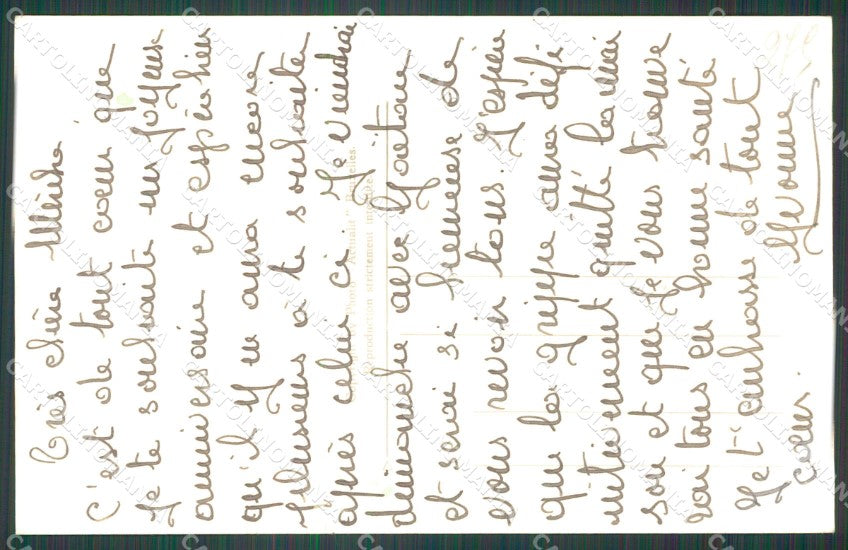 Très chère Mimke
C'est de tout coeur que
Je te souhaite un joyeux
anniversaire et espère bien
qu'il y en aura encore
plusieurs à te souhaiter
après celui ci. Je viendrai
dimanche avec Gaston
et serai si heureuse de
vous revoir tous. J'espère
que la grippe aura défi
nitivement quitté la mai
son et que je vous trouve
rai tous en bonne santé
Je t'embrasse de tout
coeur.
Yvonne
Reproduction strictement
CARTOLINOMANIA